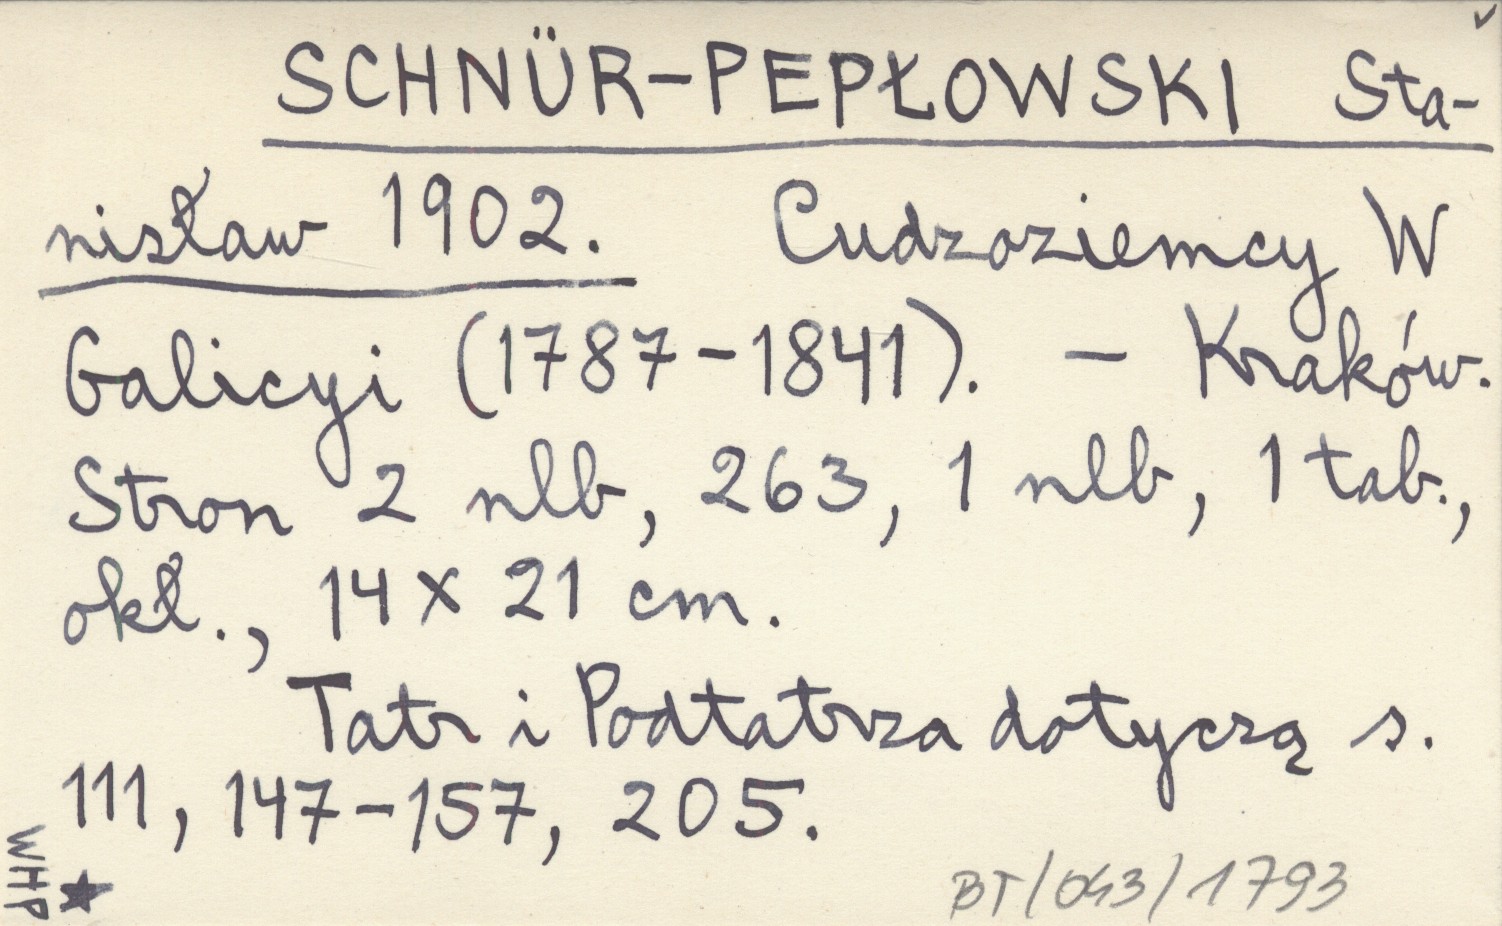 SCHNÜR-PEPŁOWSKI Sta-
nisław 1902. Cudzoziemcy W
Galicyi (1787-1841). - Kraków.
Stron 2 nlb, 263, 1 nlb, 1 tab.,
okł., 14 x 21 cm.
Tatr i Podtatrza dotyczą s.
111, 147-157, 205.
WHP
BT/043/1793